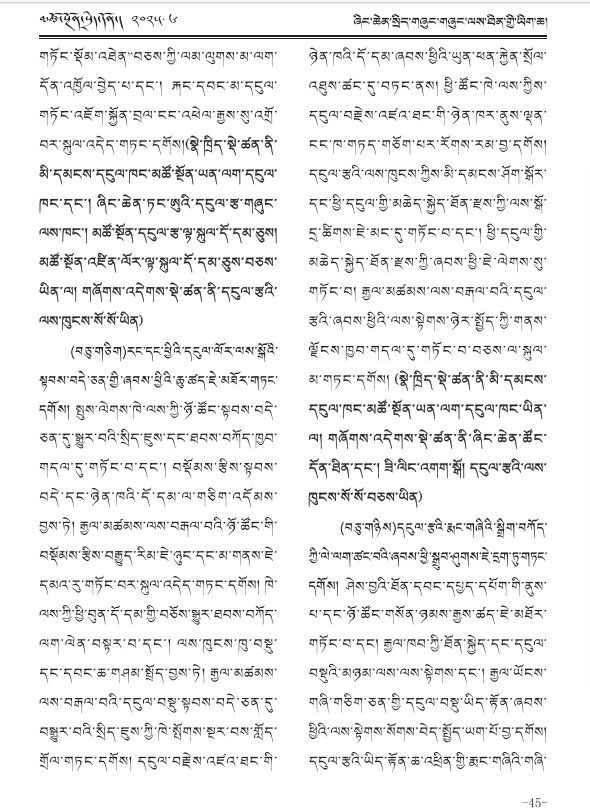 ༢༠༢༥.༤
ཞིང་ཆེན་སྲིད་གཞུང་གཞུང་ལས་ཐིན་གྱི་ཡིག་ཆ།
གཏོང་སྡོམ་འཐེན་བཅས་ཀྱི་ལམ་ལུགས་མ་ལག་
དོན་འཁྱོལ་བྱེད་པ་དང་། རྐང་དབང་མ་དངུལ་
གཏོང་འཇོག་སྐྱོན་བྲལ་ངང་འཕེལ་རྒྱས་སུ་འགྲོ་
བར་སྐུལ་འདེད་གཏང་དགོས།(སྣེ་ཁྲིད་སྡེ་ཚན་ནི་
མི་དམངས་དངུལ་ཁང་མཚོ་སྔོན་ཡན་ལག་དངུལ་
ཁང་དང་། ཞིང་ཆེན་ཏང་ཨུའི་དངུལ་རྩ་གཞུང་
ལས་ཁང་། མཚོ་སྔོན་དངུལ་རྩ་ལྟ་སྐུལ་དོ་དམ་ཅུས།
མཚོ་སྔོན་འཛིན་ལོར་ལྟ་སྐུལ་དོ་དམ་ཅུས་བཅས་
ཡིན་ལ། གཞོགས་འདེགས་སྡེ་ཚན་ནི་དངུལ་རྩའི་
ལས་ཁུངས་སོ་སོ་ཡིན)
(བཅུ་གཅིག)རང་དང་ཕྱིའི་དངུལ་ལོར་ལས་སྒོའི་
སྟབས་བདེ་ཅན་གྱི་ཞབས་ཕྱིའི་ཆུ་ཚད་ཇེ་མཐོར་གཏང་
དགོས། སྤུས་ལེགས་ཁེ་ལས་ཀྱི་ཉོ་ཚོང་སྟབས་བདེ་
ཅན་དུ་སྒྱུར་བའི་སྲིད་ཇུས་དང་ཐབས་བཀོད་ཁྱབ་
གདལ་དུ་གཏོང་བ་དང་། བསྡོམས་རྩིས་སྟབས་
བདེ་དང་ཉེན་ཁའི་དོ་དམ་ལ་གཅིག་འདོམས་
བྱས་ཏེ། རྒྱལ་མཚམས་ལས་བརྒལ་བའི་ཉོ་ཚོང་གི་
བསྡོམས་རྩིས་བརྒྱུད་རིམ་ཇེ་ཉུང་དང་མ་གནས་ཇེ་
དམའ་རུ་གཏོང་བར་སྐུལ་འདེད་གཏང་དགོས། ཁེ་
ལས་ཀྱི་ཕྱི་བུན་དོ་དམ་གྱི་བཅོས་སྒྱུར་ཐབས་བཀོད་
ལག་ལེན་བསྟར་བ་དང་། ལས་ཁུངས་ཁུ་བསྡུ་
དང་དབང་ཆ་གཤམ་སྤྲོད་བྱས་ཏེ། རྒྱལ་མཚམས་
ལས་བརྒལ་བའི་དངུལ་བསྡུ་སྟབས་བདེ་ཅན་དུ་
བསྒྱུར་བའི་སྲིད་ཇུས་ཀྱི་ཁེ་སྤོགས་སྔར་བས་གློད་
གྲོལ་གཏང་དགོས། དངུལ་བརྗེས་འཛའ་ཐང་གི་
ཉེན་ཁའི་དོ་དམ་ཞབས་ཕྱིའི་ཡུན་ཕན་རྐྱེན་སྲོལ་
འཐུས་ཚང་དུ་བཏང་ནས། ཕྱི་ཚོང་ཁེ་ལས་ཀྱིས་
དངུལ་བརྗེས་འཛའ་ཐང་གི་ཉེན་ཁར་ནུས་ལྡན་
ངང་ཁ་གཏད་གཅོག་པར་རོགས་རམ་བྱ་དགོས།
དངུལ་རྩའི་ལས་ཁུངས་ཀྱིས་མི་དམངས་ཤོག་སྒོར་
དང་ཕྱི་དངུལ་གྱི་མཆེད་སྐྱེད་ཐོན་རྫས་ཀྱི་ལས་སྒོ་
དྲ་ཚིགས་ཇེ་མང་དུ་གཏོང་བ་དང་། ཕྱི་དངུལ་གྱི་
མཆེད་སྐྱེད་ཐོན་རྫས་ཀྱི་ཞབས་ཕྱི་ཇེ་ལེགས་སུ་
གཏོང་བ། རྒྱལ་མཚམས་ལས་བརྒལ་བའི་དངུལ་
རྩའི་ཞབས་ཕྱིའི་ལས་སྟེགས་ཉེར་སྤྱོད་ཀྱི་གནས་
ལྗོངས་ཁྱབ་གདལ་དུ་གཏོང་བ་བཅས་ལ་སྐུལ་
མ་གཏང་དགོས། (སྣེ་ཁྲིད་སྡེ་ཚན་ནི་མི་དམངས་
དངུལ་ཁང་མཚོ་སྔོན་ཡན་ལག་དངུལ་ཁང་ཡིན་
ལ། གཞོགས་འདེགས་སྡེ་ཚན་ནི་ཞིང་ཆེན་ཚོང་
དོན་ཐིན་དང་། ཟི་ལིང་འགག་སྒོ། དངུལ་རྩའི་ལས་
ཁུངས་སོ་སོ་བཅས་ཡིན)
(བཅུ་གཉིས)དངུལ་རྩའི་རྨང་གཞིའི་སྒྲིག་བཀོད་
ཀྱི་ལེ་ལག་ཚང་བའི་ཞབས་ཕྱི་སྒྲུབ་ཤུགས་ཇེ་དྲག་ཏུ་གཏང་
དགོས། ཤེས་བྱའི་ཐོན་དབང་དཔྱད་དཔོག་གི་ནུས་
པ་དང་ཉོ་ཚོང་གསོན་ཉམས་རྒྱས་ཚད་ཇེ་མཐོར་
གཏོང་བ་དང། རྒྱལ་ཁབ་ཀྱི་ཐོན་སྐྱེད་དང་དངུལ་
བསྡུའི་མཉམ་ལས་ལས་སྟེགས་དང་། རྒྱལ་ཡོངས་
གཞི་གཅིག་ཅན་གྱི་དངུལ་བསྡུ་ཡིད་རྟོན་ཞབས་
ཕྱིའི་ལས་སྟེགས་སོགས་བེད་སྤྱོད་ཡག་པོ་བྱ་དགོས།
དངུལ་རྩའི་ཡིད་རྟོན་ཆ་འཕྲིན་གྱི་རྨང་གཞིའི་གཞི་
-45-